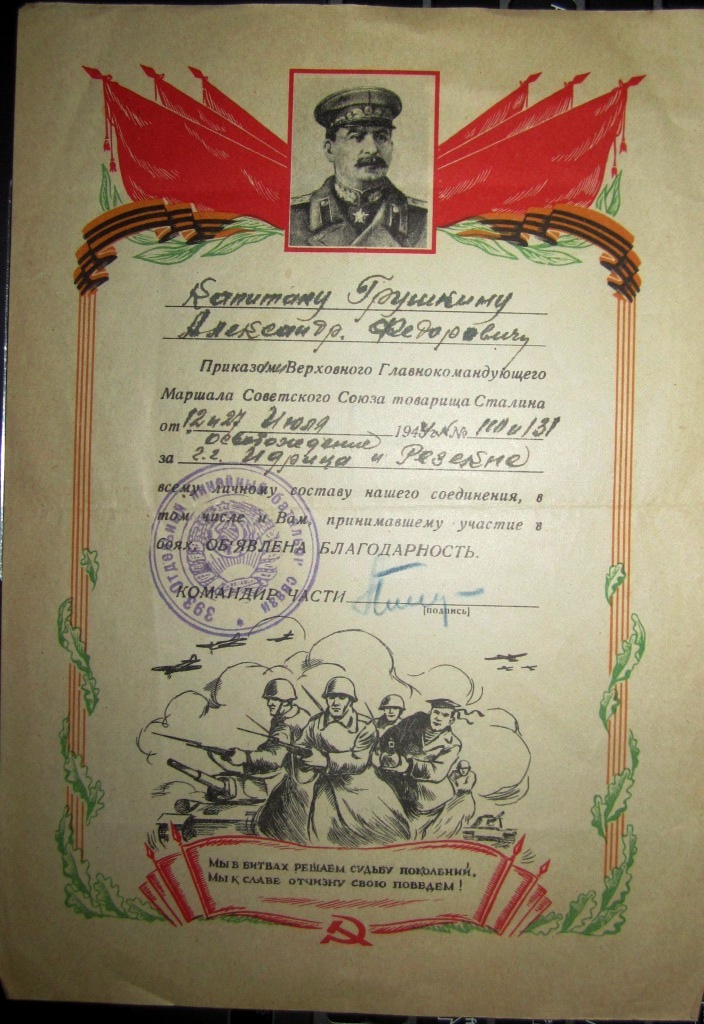 Капитану Грушкину
Александр. Федоровичу
Приказом Верховного Главнокомандующего
Маршала Советского Союза товарища Сталина
от 12 и 27 Июля 1944 г. №
освобождение
за г.г. Идрица и Резекне
всему личному составу нашего соединения, в
том числе и Вам, принимавшему участие в
боях, ОБ'ЯВЛЕНА БЛАГОДАРНОСТЬ.
КОМАНДИР ЧАСТИ
[подпись]
393 отдельный линейный батальон связи
МЫ В БИТВАХ РЕШАЕМ СУДЬБУ ПОКОЛЕНИЙ,
МЫ К СЛАВЕ ОТЧИЗНУ СВОЮ ПОВЕДЕМ!